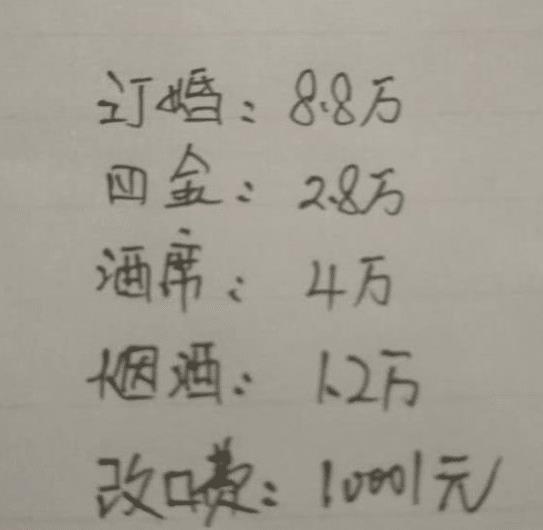 订婚：8.8万
四金：2.8万
酒席：4万
烟酒：1.2万
改口费：10001元